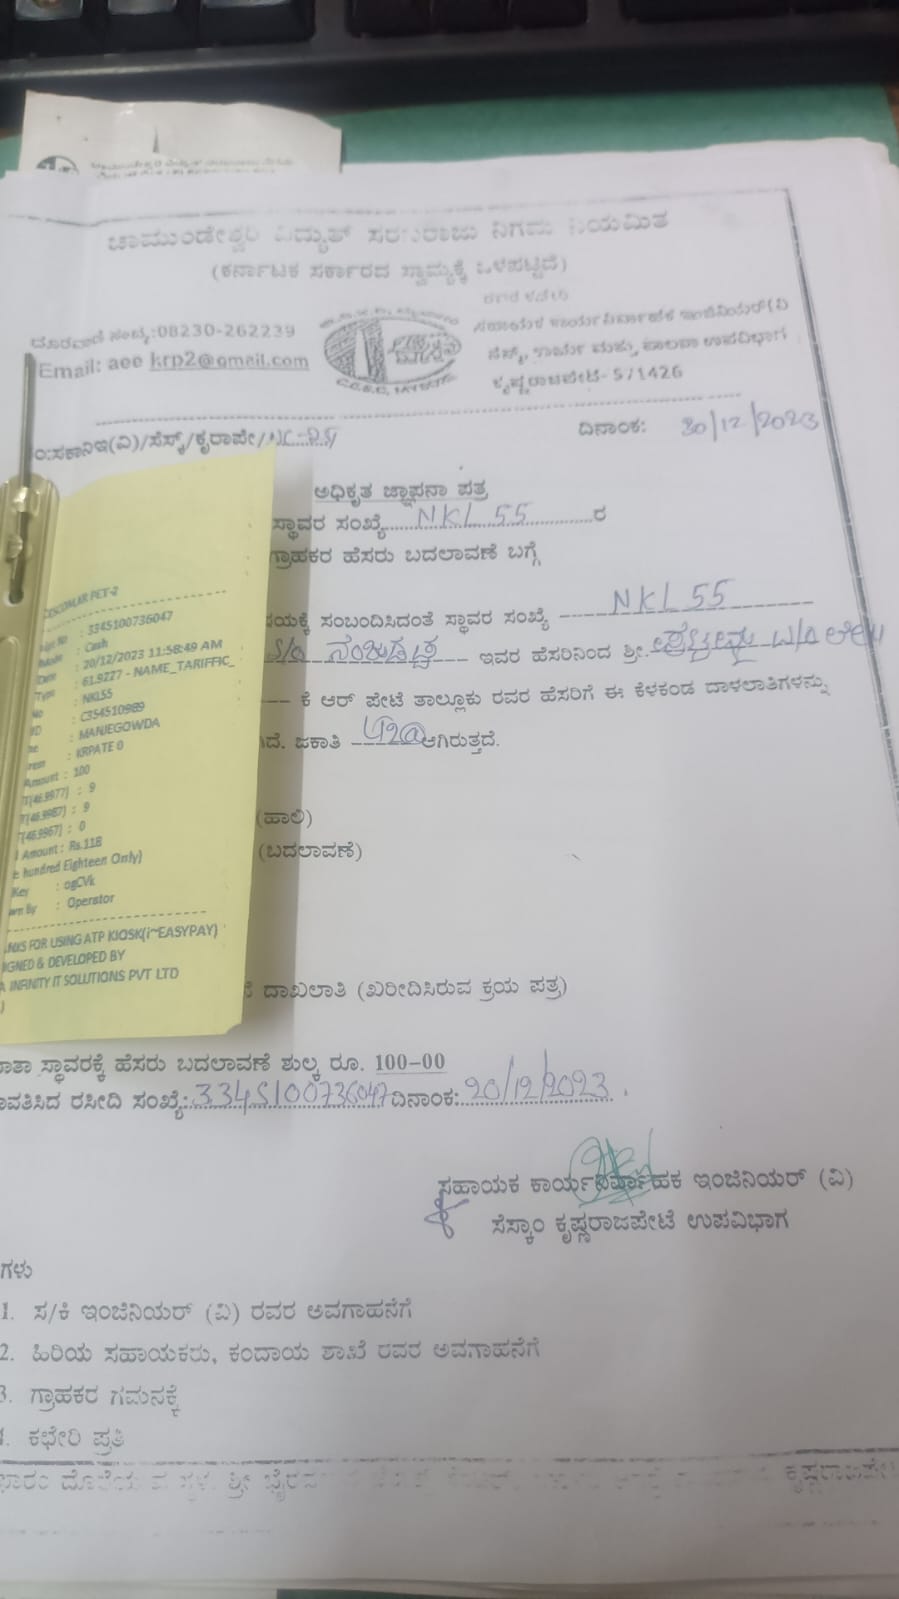 ಚಾಮುಂಡೇಶ್ವರಿ ವಿದ್ಯುತ್ ಸರಬರಾಜು ನಿಗಮ ನಿಯಮಿತ
(ಕರ್ನಾಟಕ ಸರ್ಕಾರದ ಸ್ವಾಮ್ಯಕ್ಕೆ ಒಳಪಟ್ಟಿದೆ)
ದೂರವಾಣಿ ಸಂಖ್ಯೆ:08230-262239
Email: aee krp2@gmail.com
ಸಹಾಯಕ ಕಾರ್ಯನಿರ್ವಾಹಕ ಇಂಜಿನಿಯರ್(ವಿ
ಸೆಸ್ಕ್, ಕಾರ್ಯ ಮತ್ತು ಪಾಲನಾ ಉಪವಿಭಾಗ
ಕೃಷ್ಣರಾಜಪೇಟೆ-571426
ಂ:ಸಕಾನಿಇ(ವಿ)/ಸೆಸ್ಕ್/ಕೃರಾಪೇ/
ದಿನಾಂಕ: 30/12/2023
ಅಧಿಕೃತ ಜ್ಞಾಪನಾ ಪತ್ರ
ಸ್ಥಾವರ ಸಂಖ್ಯೆ NKL 55 ರ
ಗ್ರಾಹಕರ ಹೆಸರು ಬದಲಾವಣೆ ಬಗ್ಗೆ
ಷಯಕ್ಕೆ ಸಂಬಂದಿಸಿದಂತೆ ಸ್ಥಾವರ ಸಂಖ್ಯೆ NKL 55
S/o ಇವರ ಹೆಸರಿನಿಂದ ಶ್ರೀ.
ಕೆ ಆರ್ ಪೇಟೆ ತಾಲ್ಲೂಕು ರವರ ಹೆಸರಿಗೆ ಈ ಕೆಳಕಂಡ ದಾಳಲಾತಿಗಳನ್ನು
ಗಿದೆ. ಜಕಾತಿ ಆಗಿರುತ್ತದೆ.
(ಹಾಲಿ)
(ಬದಲಾವಣೆ)
CESCOM,KR PET-2
: 3345100736047
Mode : Cash
Date : 20/12/2023 11:58:49 AM
Type : 61.9227 - NAME_TARIFFIC_
No : NKL55
ID : C354510989
: MANJEGOWDA
: KRPATE 0
Amount : 100
T(46.9977) : 9
T(46.9987) : 9
T(46.9967) : 0
Amount : Rs.118
e hundred Eighteen Only)
Key : ogCVk
wn By : Operator
NKS FOR USING ATP KIOSK(i~EASYPAY)
IGNED & DEVELOPED BY
A INFINITY IT SOLUTIONS PVT LTD
ದಾಖಲಾತಿ (ಖರೀದಿಸಿರುವ ಕ್ರಯ ಪತ್ರ)
ಾತಾ ಸ್ಥಾವರಕ್ಕೆ ಹೆಸರು ಬದಲಾವಣೆ ಶುಲ್ಕ ರೂ. 100-00
ಾವತಿಸಿದ ರಸೀದಿ ಸಂಖ್ಯೆ: 3345100736047 ದಿನಾಂಕ: 20/12/2023
ಸಹಾಯಕ ಕಾರ್ಯನಿರ್ವಾಹಕ ಇಂಜಿನಿಯರ್ (ವಿ)
ಸೆಸ್ಕಾಂ ಕೃಷ್ಣರಾಜಪೇಟೆ ಉಪವಿಭಾಗ
ಗಳು
1. ಸ/ಕಿ ಇಂಜಿನಿಯರ್ (ವಿ) ರವರ ಅವಗಾಹನೆಗೆ
2. ಹಿರಿಯ ಸಹಾಯಕರು, ಕಂದಾಯ ಶಾಖೆ ರವರ ಅವಗಾಹನೆಗೆ
3. ಗ್ರಾಹಕರ ಗಮನಕ್ಕೆ
4. ಕಛೇರಿ ಪ್ರತಿ